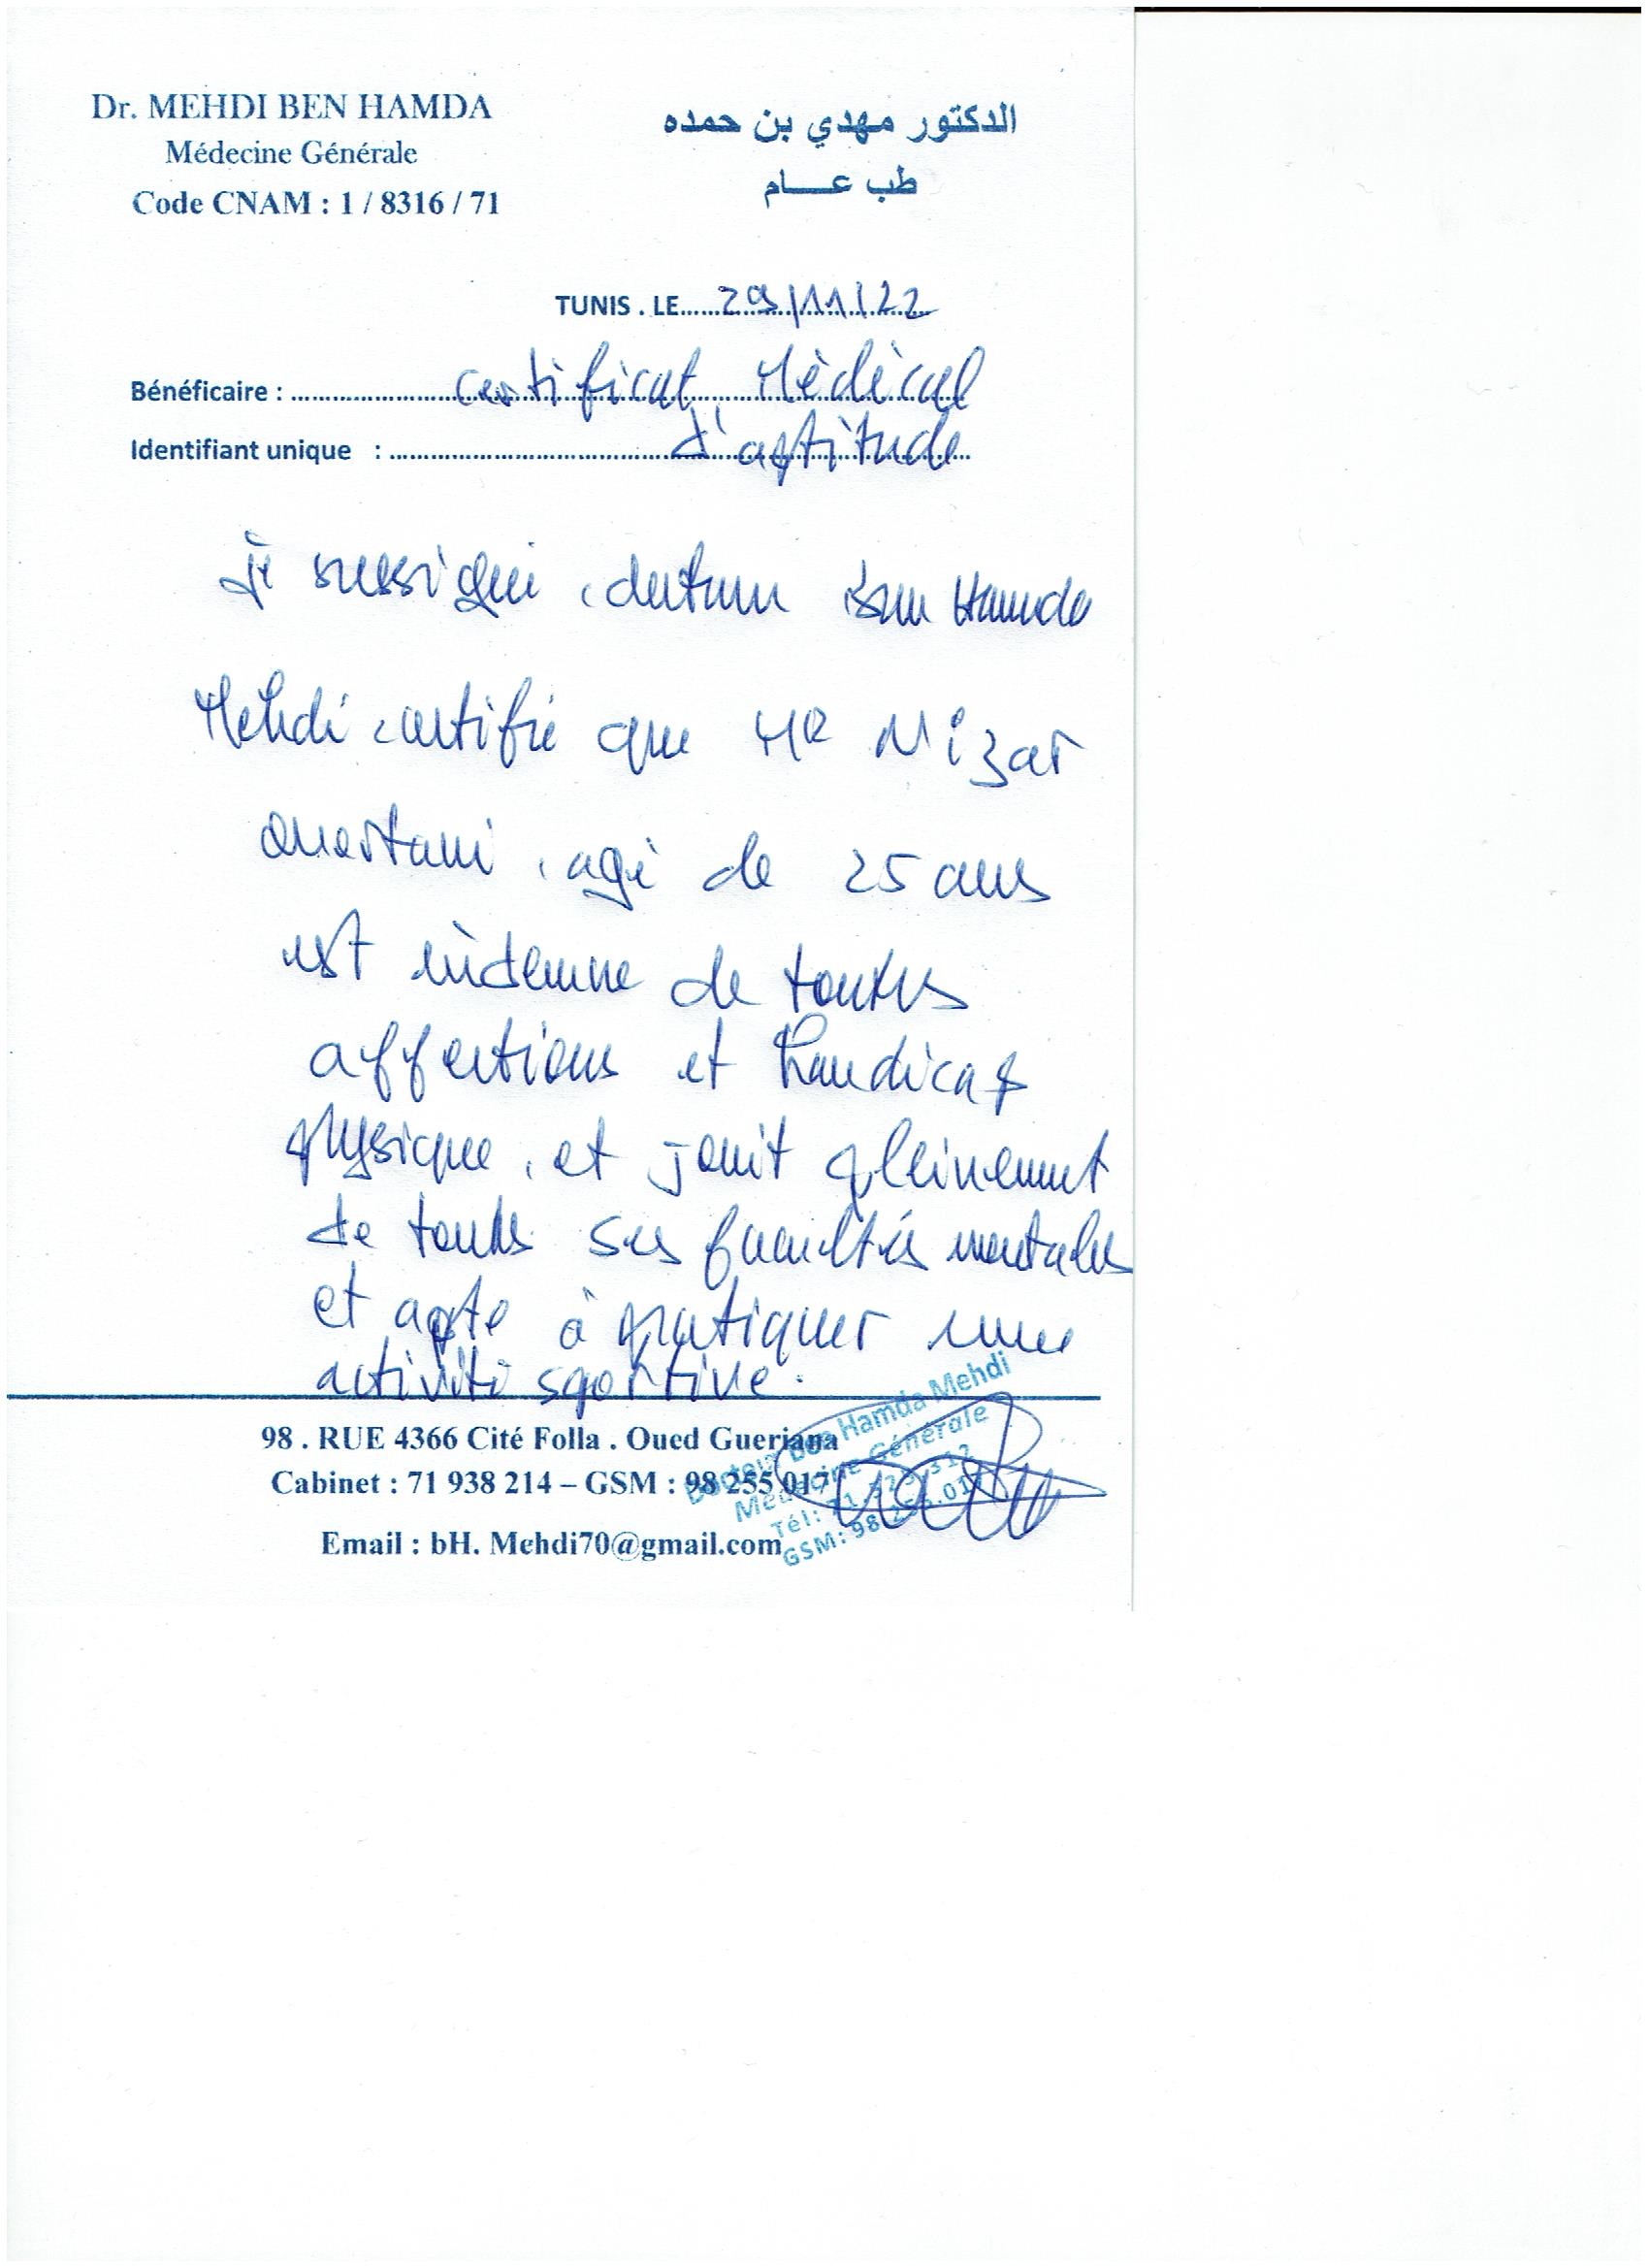 Dr. MEHDI BEN HAMDA
Médecine Générale
Code CNAM : 1 / 8316 / 71
الدكتور مهدي بن حمده
طب عــــام
TUNIS . LE 29/11/22
Bénéficaire : certificat Médical
Identifiant unique : d'aptitude
Je sussigné, docteur Ben Hamda
Mehdi certifie que Mr Nizar
Ouertani, agé de 25 ans
est indemne de toutes
affections et handicap
physique, et jouit pleinement
de toutes ses facultés mentales
et apte à pratiquer une
activité sportive.
98 . RUE 4366 Cité Folla . Oued Gueriana
Cabinet : 71 938 214 – GSM : 98 255 017
Email : bH. Mehdi70@gmail.com
Docteur Ben Hamda Mehdi
Médecine Générale
Tél: 71
GSM: 98